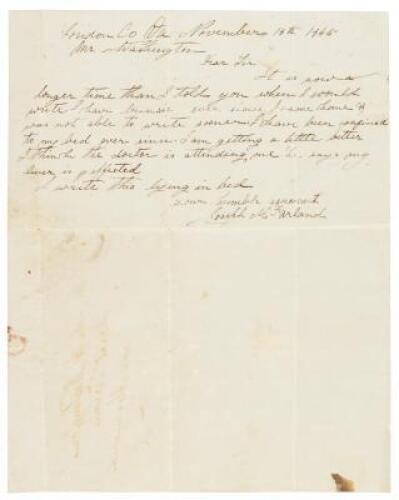 Loudon Co Va November 18th 1845
Mr Washington
Dear Sir
It is now a
longer time than I told you when I would
write I have been sick ever since I came home &
was not able to write sooner I have been confined
to my bed ever since I am getting a little better
I think the doctor is attending me he says my
liver is affected
I write this lying in bed
your humble servant
Joseph McFarland